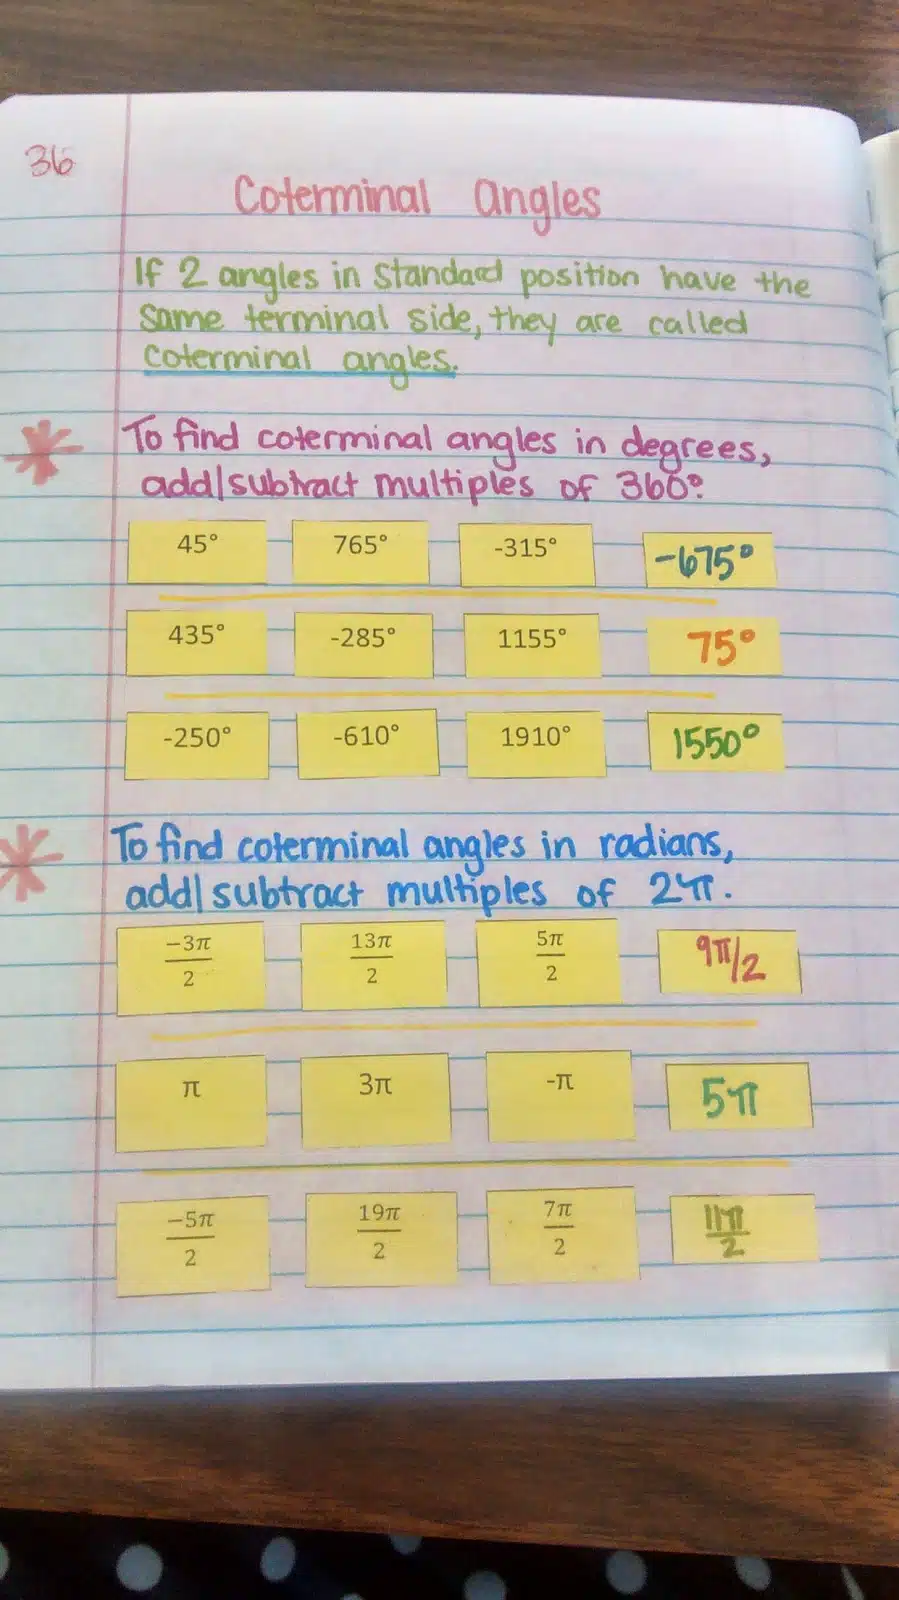 36
Coterminal angles
If 2 angles in standard position have the
same terminal side, they are called
coterminal angles.
To find coterminal angles in degrees,
add/subtract multiples of 360°.
45° 765° -315° -675°
435° -285° 1155° 75°
-250° -610° 1910° 1550°
To find coterminal angles in radians,
add/subtract multiples of 2π.
-3π/2 13π/2 5π/2 9π/2
π 3π -π 5π
-5π/2 19π/2 7π/2 11π/2